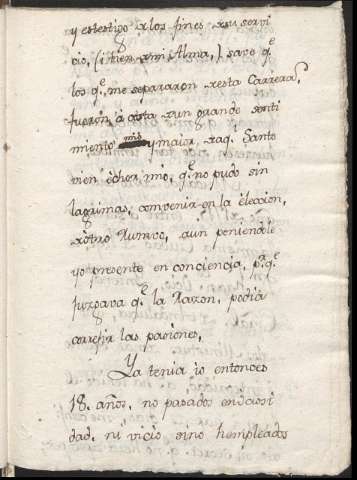 y estestigo Dlos fines Dsu servi
cio, (i bien Dmi Alma,) save q.e
los q.e me separaron Desta Carrera,
fueron à costa Dun grande senti
miento mio y maior, Daq.l Santo
vien êchor mio, q.e no pudo sin
lagrimas, convenir en la êleccion,
D ôtro Rumvo, aun poniendole
yo presente en conciencia, p.r q.e
juzgava q.e la Razon, podia
corregir las pasiones,
Ya tenia io entonces
18. años, no pasados en ôciosi
dad, ni vicio sino hempleados